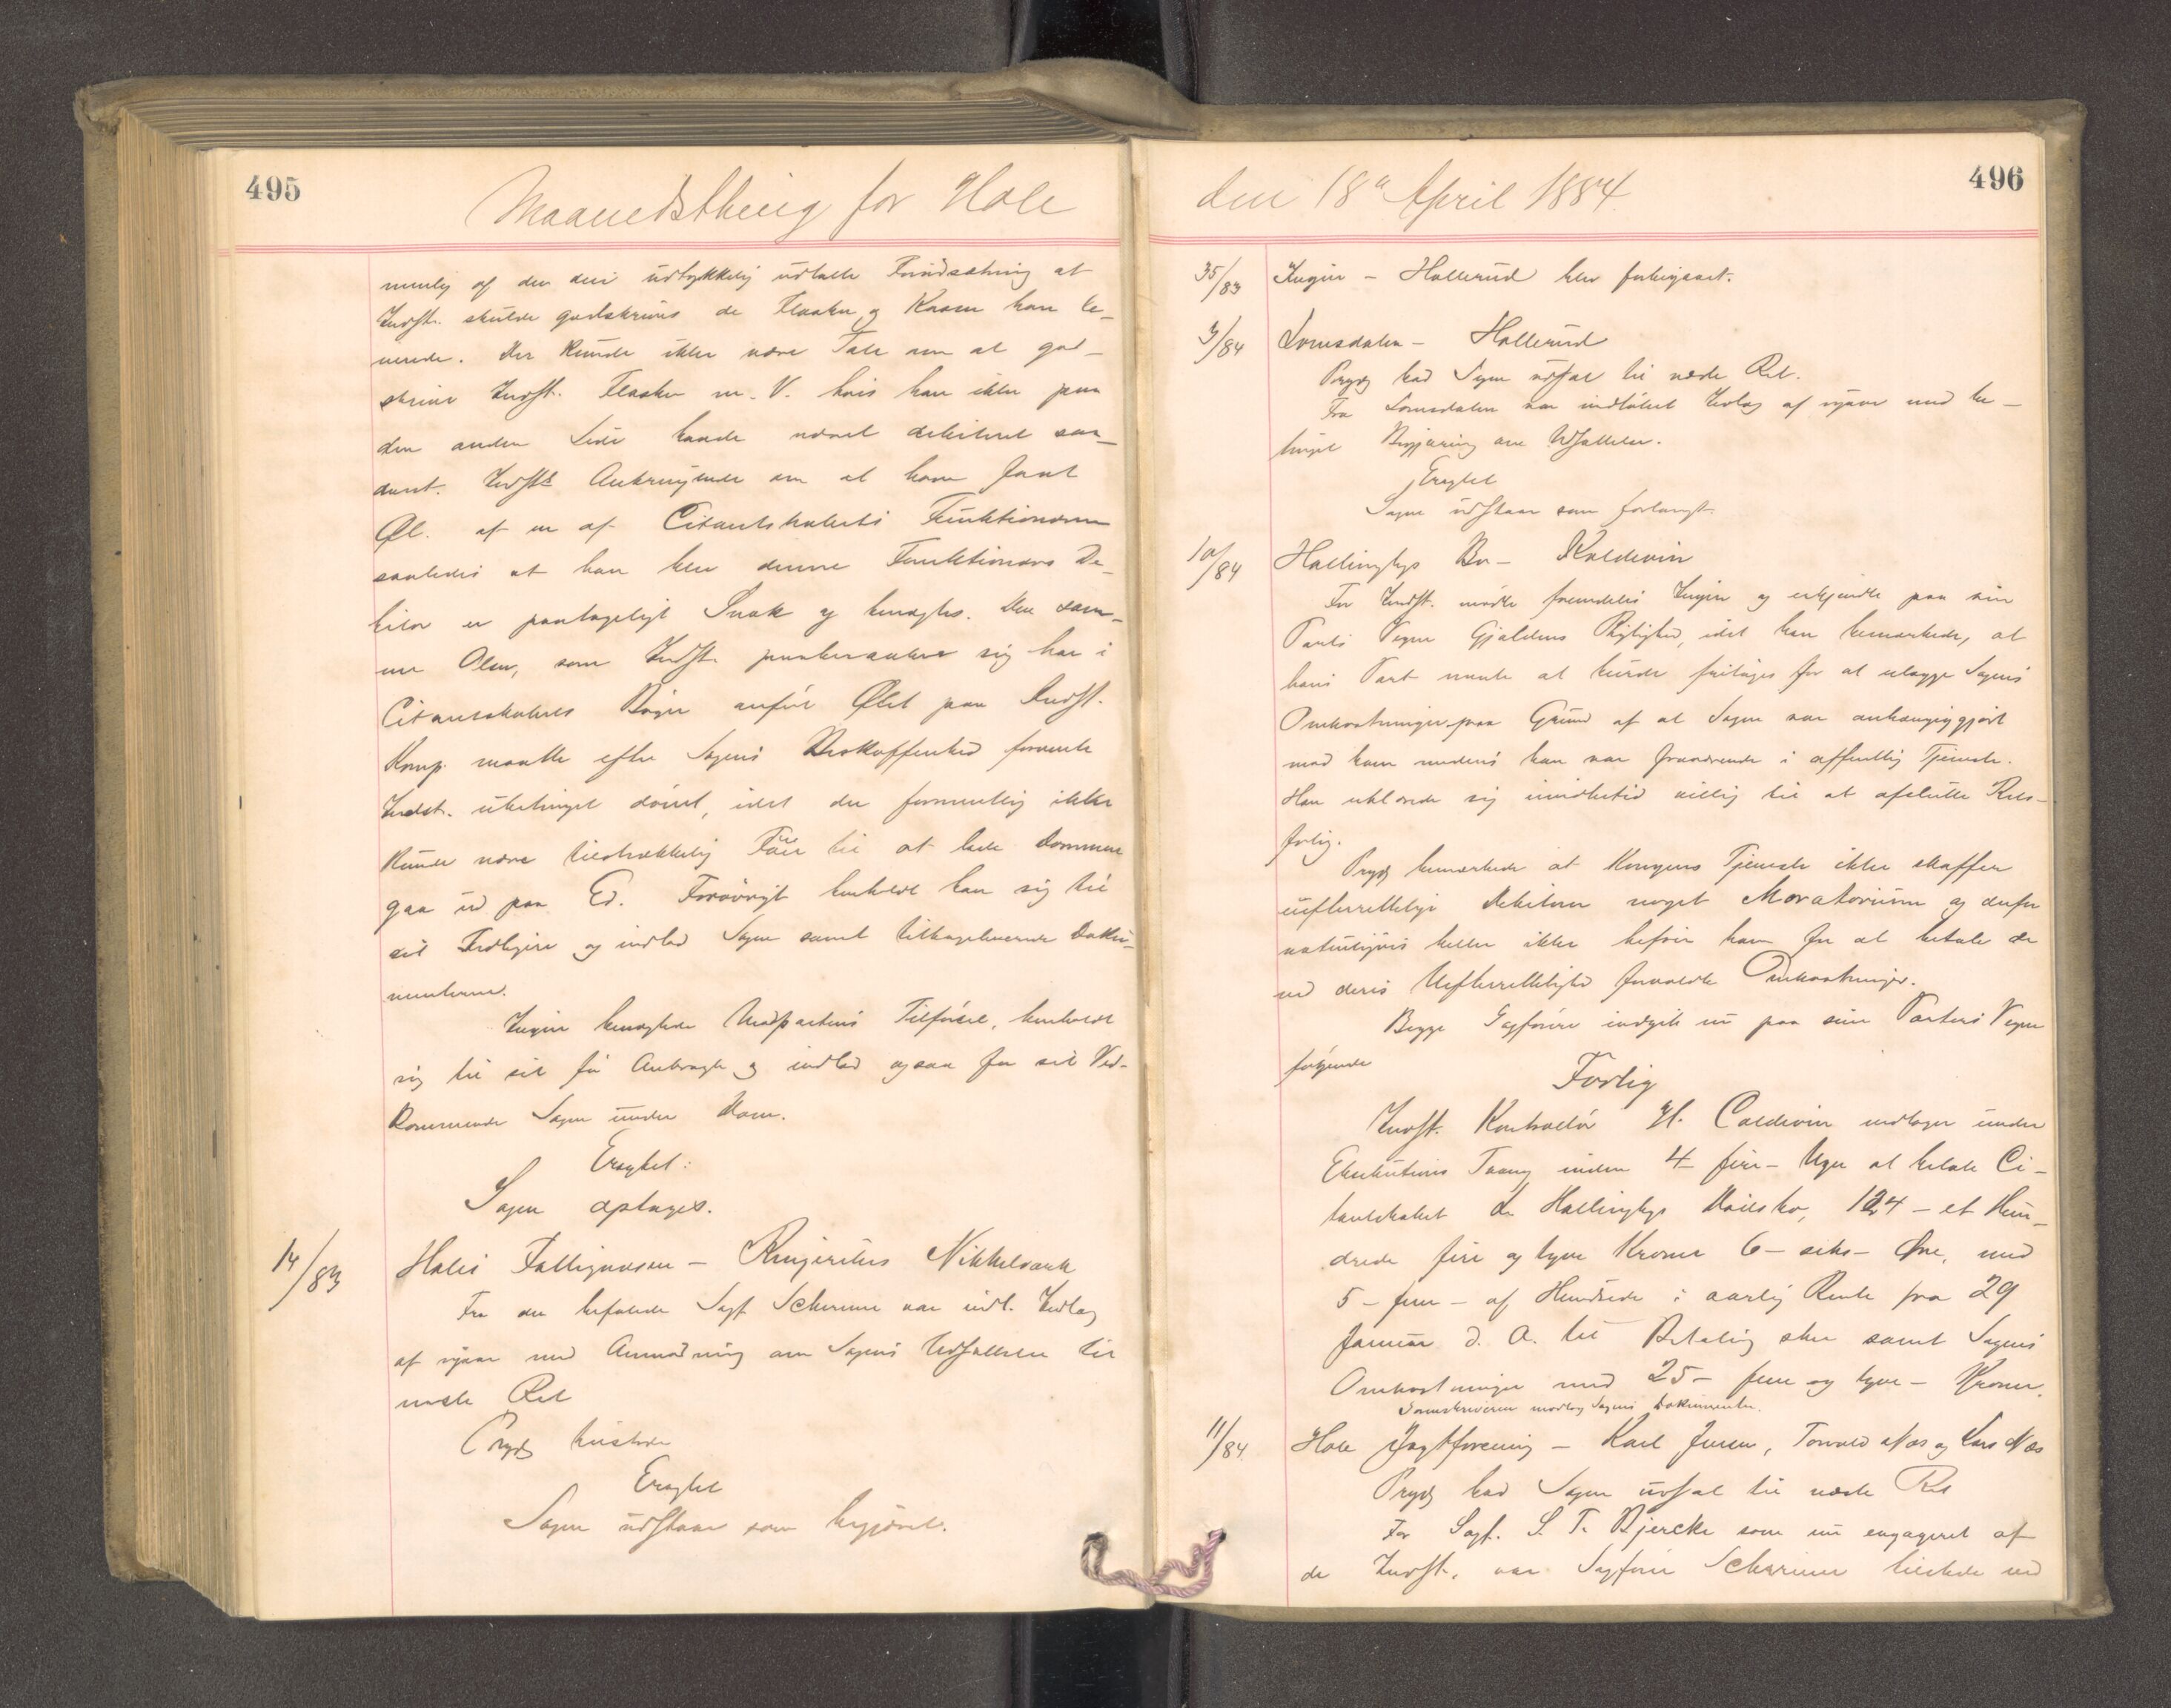 495
Maanedsthing for Hole
nemlig af den deri udtrykkelig udtalte Forudsætning at
Indst. skulde godskrives de Flasker og Kasser han le-
verede. Der kunde ikke være Tale om at god-
skrive Indst. Flasker m. V. hvis han ikke paa
den anden Side havde været debiteret saa-
dant. Indsts Anbringende om at have faaet
Øl af en af Citantskabets Funktionærer
saaledes at han blev denne Funktionærs De-
bitor er pantageligt Snak og benægtes. Den sam-
me Olsen, som Indst. paaberaaber sig har i
Citantskabets Bøger anført Ølet paa Indst.
Krup maatte efter Sagens Beskaffenhed forvente
Indst. ubetinget dømt, idet der formentlig ikke
kunde være tilstrækkelig Føie til at lade Dommen
gaa ud paa Ed. Forøvrigt henholdt han sig til
sit Tidligere og indlod Sagen samt tilbageleverede Doku-
menterne.
Ingier benægtede Modpartens Tilførsel, henholdt
sig til sit før Anbragte og indlod ogsaa for sit Ved-
kommende Sagen under Dom.
Eragtet:
Sagen optages.
14/83 Halvor Fallignæsen – Ringeriks Nikkelværk
Fra den befalede Sagf. Scheruum var indl. Indlæg
af igaar med Anmodning om Sagens Udsættelse til
næste Ret
Prydz tilstede
Eragtet
Sagen udstaar som begjæret.
496
den 18de April 1884.
35/83 Ingier – Hallerud blev forbigaaet.
3/84 Lomsdalen – Hallerud
Prydz bad Sagen udsat til næste Ret.
Fra Lomsdalen var indløbet Indlæg af igaar med be-
tinget Begjæring om Udsættelse.
Eragtet
Sagen udstaar som forlangt.
10/84 Hallingbys Bo – Koldevin
For Indst. mødte fremdeles Ingier og erkjendte paa sin
Parts Vegne Gjældens Rigtighed, idet han bemærkede, at
hans Part mente at burde fritages for at udlægge Sagens
Omkostninger paa Grund af at Sagen var anhængiggjort
mod ham medens han var fraværende i offentlig Tjeneste.
Han erklærede sig imidlertid villig til at afslutte Rets-
forlig.
Prydz bemærkede at Kongens Tjeneste ikke skaffer
uefterrettelige Debitorer noget Moratorium og derfor
naturligvis heller ikke befrier ham for at betale de
ved deres Uefterrettelighed forvoldte Omkostninger.
Begge Sagførere indgik nu paa sine Parters Vegne
følgende
Forlig
Indst. Kontrollør H. Coldevin vedtager under
Exekutions Tvang inden 4 – fire – Uger at betale Ci-
tantskabet de Hallingbys Dødsbo, 124 – et Hun-
drede fire og tyve Kroner 6 – seks – Øre, med
5 – fem – af Hundrede i aarlig Rente fra 29
Januar d. A. til Betaling sker samt Sagens
Omkostninger med 25 – fem og tyve – Kroner.
Sorenskriveren modtog Sagens Dokumenter.
11/84. Hole Jagtforening – Karl Jensen, Torvald Næs og Lars Næs
Prydz bad Sagen udsat til næste Ret
For Sagf. S. T. Bjercke som nu engageret af
de Indst., var Sagfører Scheruum tilstede ved